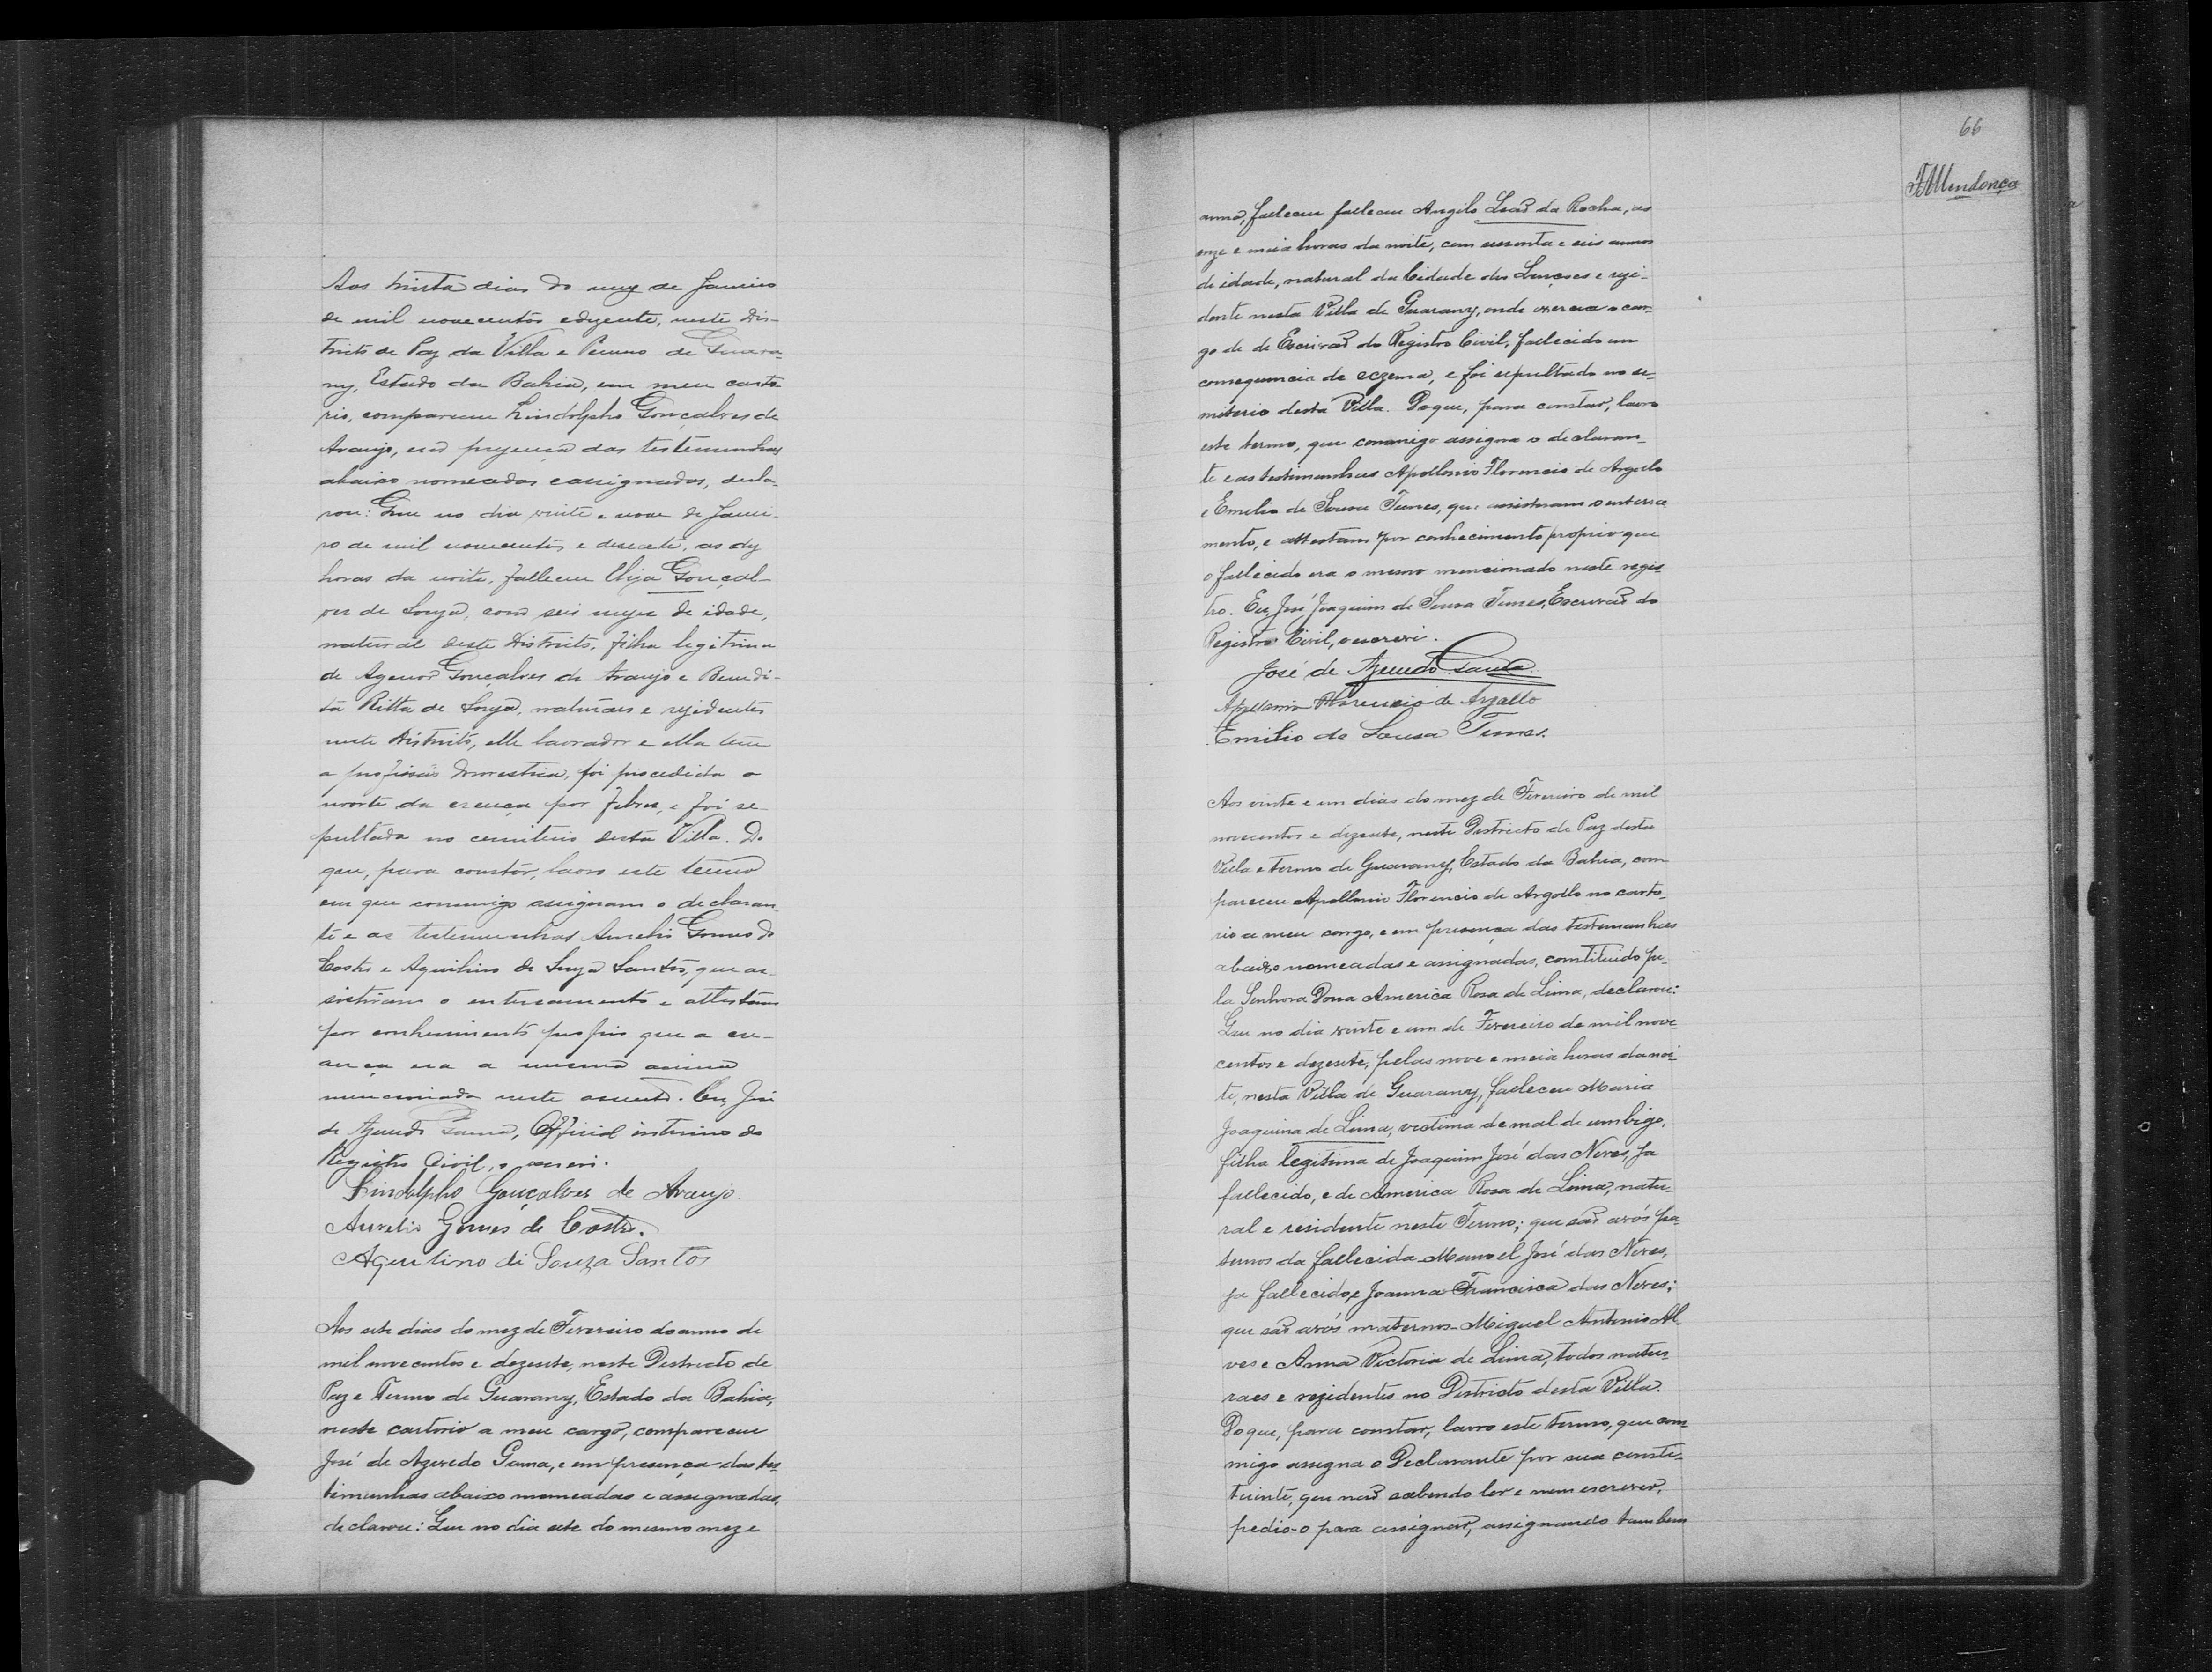 Aos trinta dias do mez de Janeiro
de mil novecentos e dezesete, neste Dis-
tricto de Paz da Villa e Termo de Guara
ny, Estado da Bahia, em meu carto
rio, compareceu Lindolpho Gonçalves de
Araujo, e em prezença das testemunhas
abaixo nomeadas e assignadas, decla-
rou: Que no dia vinte e nove de Janei-
ro de mil novecentos e desesete, as dez
horas da noite, falleceu Gonçal-
ves de Souza, com seis mezes de idade,
natural deste Districto, filha legitima
de Agenor Gonçalves de Araujo e Benedi-
ta Ritta de Souza, naturaes e rezidentes
neste Districto, elle lavrador e ella tem
a profissão domestica, foi procedida a
morte da creança por febres, e foi se-
pultada no cemiterio desta Villa. Do
que, para constar, lavro este termo
em que commigo assignam o declaran-
te e as testemunhas Aurelio Gomes de
Costa e Aquilino de Souza Santos, que as-
sistiram o enterramento e attestam
por conhecimento proprio que a cre-
ança era a mesma acima
mencionada neste assento. Eu, José
de Azevedo Gama, Official interino do
Registro Civil, o escrevi.
Lindolpho Gonçalves de Araujo.
Aurelio Gomes de Costa.
Aquilino di Souza Santos
Aos sete dias do mez de Fevereiro do anno de
mil novecentos e dezesete, neste Districto de
Paz e Termo de Guarany, Estado da Bahia,
neste cartorio a meu cargo, compareceu
José de Azevedo Gama, e em presença das tes-
timunhas abaixo nomeadas e assignadas,
declarou: Que no dia sete do mesmo mez e
66
Mendonça
anno, falleceu falleceu Angelo Leão da Rocha, as
onze e meia horas da noite, com sessenta e seis annos
de idade, natural da Cidade dos Lençoes e rezi-
dente nesta Villa de Guarany, onde exercia o car-
go de de Escrivão do Registro Civil, fallecido em
consequencia de eczema, e foi sepultado no se-
miterio desta Villa. Do que, para constar, lavro
este termo, que commigo assigna o declaran-
te e as testimunhas Apollonio Florencio de Argollo
e Emilio de Sousa Tunes, que assistiram o enterra
mento, e attestam por conhecimento proprio que
o fallecido era o mesmo mencionado neste regis-
tro. Eu, José Joaquim de Sousa Tunes, Escrivão do
Registro Civil, o escrevi.
José de Azevedo Gama
Apollonio Florencio de Argollo
Emilio de Sousa Tunes.
Aos vinte e um dias do mez de Fevereiro de mil
novecentos e dezesete, neste Districto de Paz desta
Villa e termo de Guarany, Estado da Bahia, com
pareceu Apollonio Florencio de Argollo no carto-
rio a meu cargo, e em presença das testemunhas
abaixo nomeadas e assignadas, constituido pe-
la Senhora Dona America Rosa de Lima, declarou:
Que no dia vinte e um de Fevereiro de mil nove-
centos e dezesete, pelas nove e meia horas da noi-
te, nesta Villa de Guarany, falleceu Maria
Joaquina de Lima, victima de mal de umbigo,
filha legitima de Joaquim José das Neves, ja
fallecido, e de America Rosa de Lima, natu-
ral e residente neste Termo; que são avós pa-
ternos da fallecida Manoel José das Neves,
ja fallecido, e Joanna Francisca das Neves;
que são avós maternos Miguel Antonio Al-
ves e Anna Victoria de Lima, todos natu-
raes e rezidentes no Districto desta Villa.
Do que, para constar, lavro este termo, que com-
migo assigna o Declarante por sua consti-
tuinte, que não sabendo ler e nem escrever,
pedio-o para assignar, assignando tambem